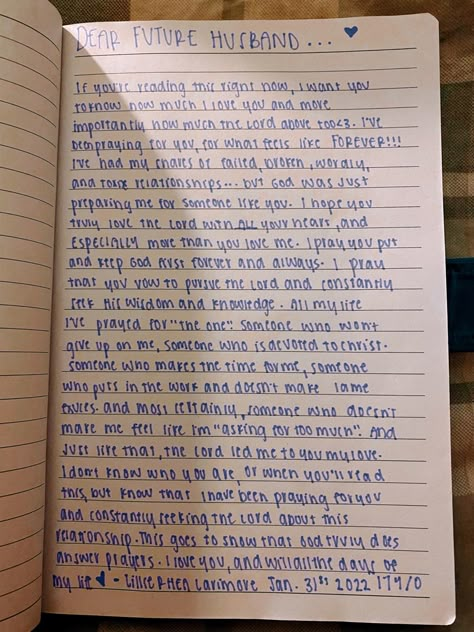 DEAR FUTURE HUSBAND...
If you're reading this right now, I want you
to know how much I love you and more
importantly how much the Lord above too<3. I've
been praying for you, for what feels like FOREVER!!!
I've had my shares of failed, broken, wordly,
and toxic relationships... but God was just
preparing me for someone like you. I hope you
truly love the Lord with ALL your heart, and
ESPECIALLY more than you love me. I pray you put
and keep God first forever and always. I pray
that you vow to pursue the Lord and constantly
seek His wisdom and knowledge. All my life
I've prayed for "the one". Someone who won't
give up on me, someone who is devoted to Christ.
Someone who makes the time for me, someone
who puts in the work and doesn't make lame
and most certainly, someone who doesn't
make me feel like I'm "asking for too much". And
just like that, the Lord led me to you my love.
I don't know who you are, or when you'll read
this, but know that I have been praying for you
and constantly seeking the Lord about this
relationship. This goes to show that God truly does
answer prayers. I love you, and will all the days of
my life - Larimore Jan. 31st 2022